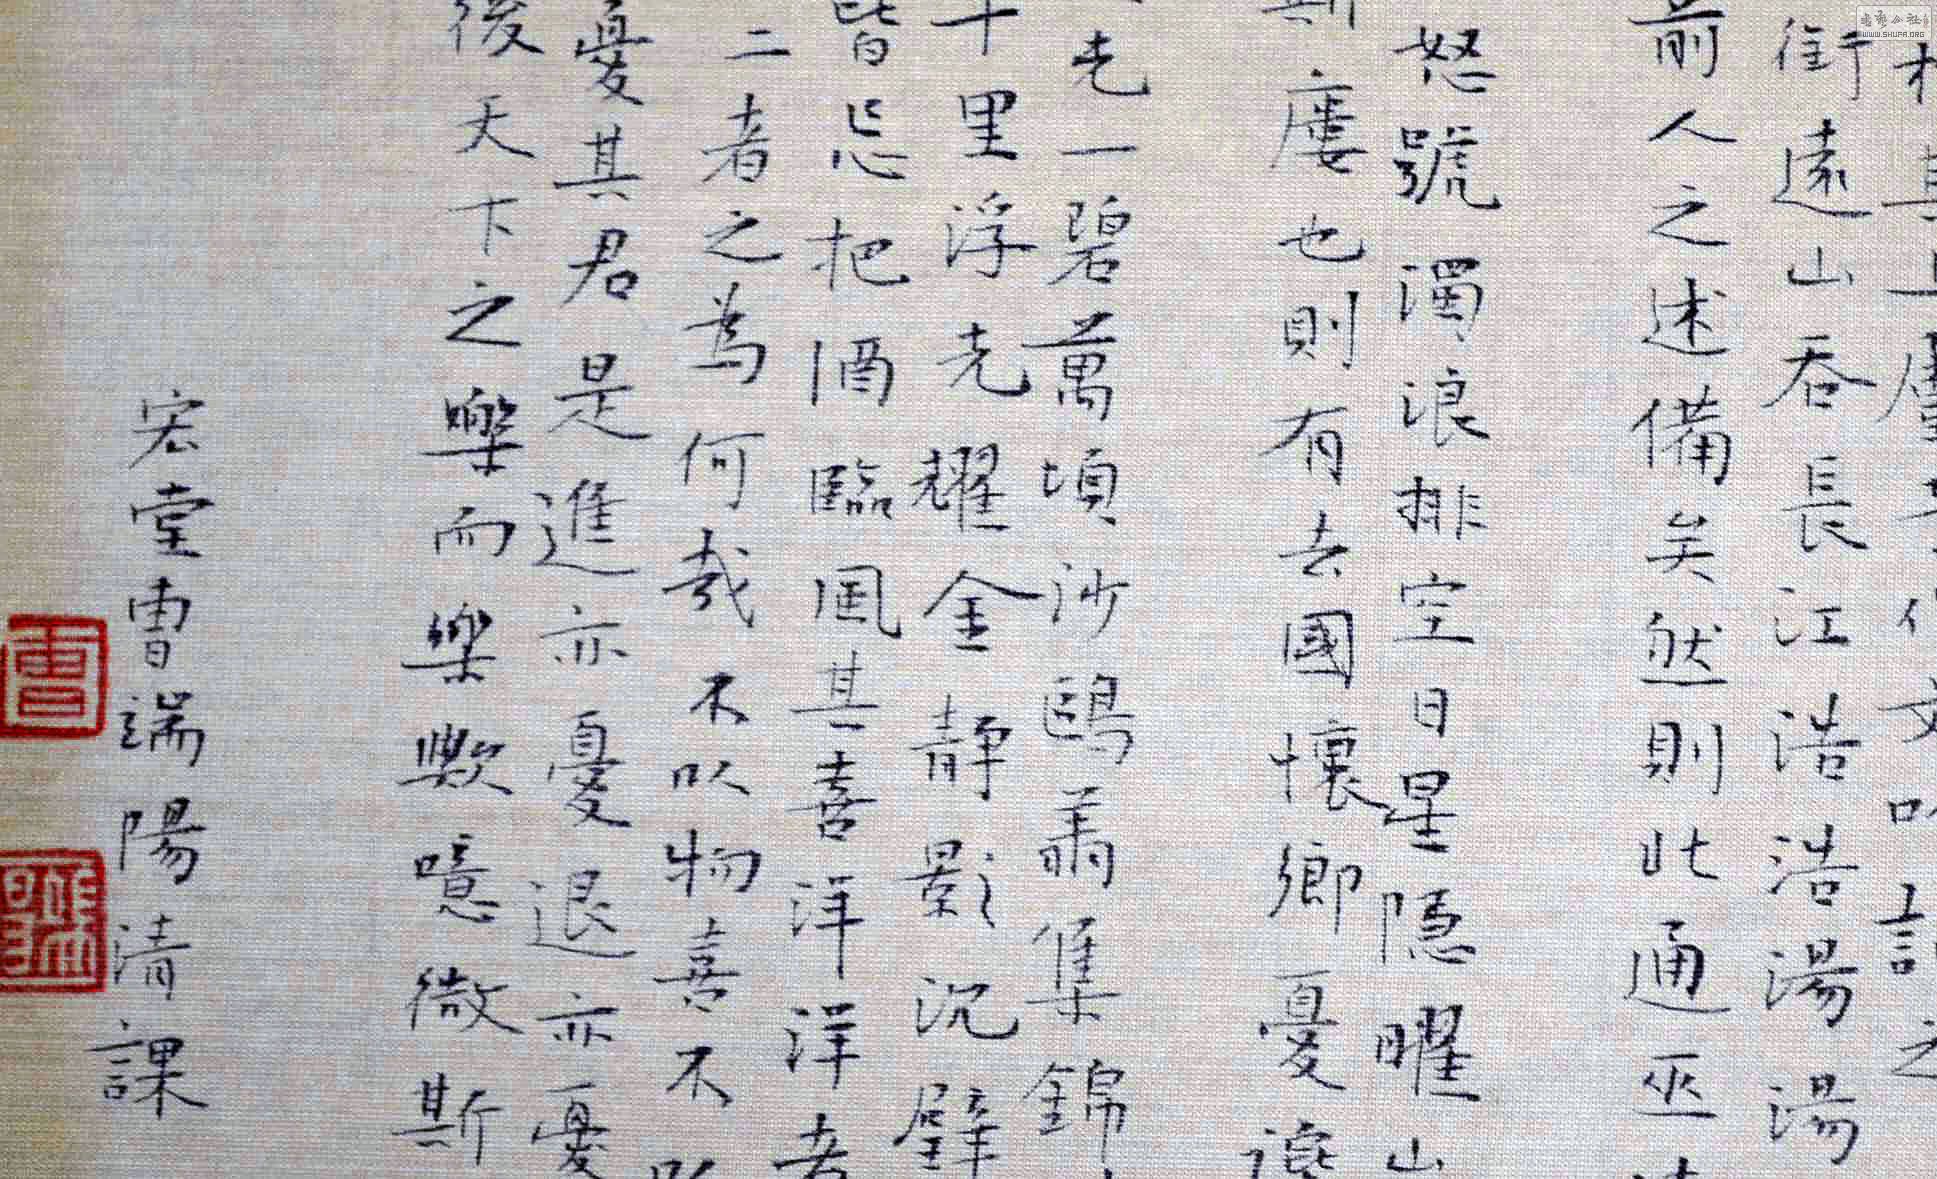 其上屬予作文以記之
銜遠山吞長江浩浩湯湯
前人之述備矣然則此通巫
怒號濁浪排空日星隱曜山
斯廔也則有去國懷鄉憂讒
光一碧萬頃沙鷗翔集錦
十里浮光耀金靜影沉璧
皆忘把酒臨風其喜洋洋者
二者之為何哉不以物喜不以
憂其君是進亦憂退亦憂
後天下之樂而樂歟噫微斯
宏堂曹端陽清課
曹
WWW.SHUFA.ORG